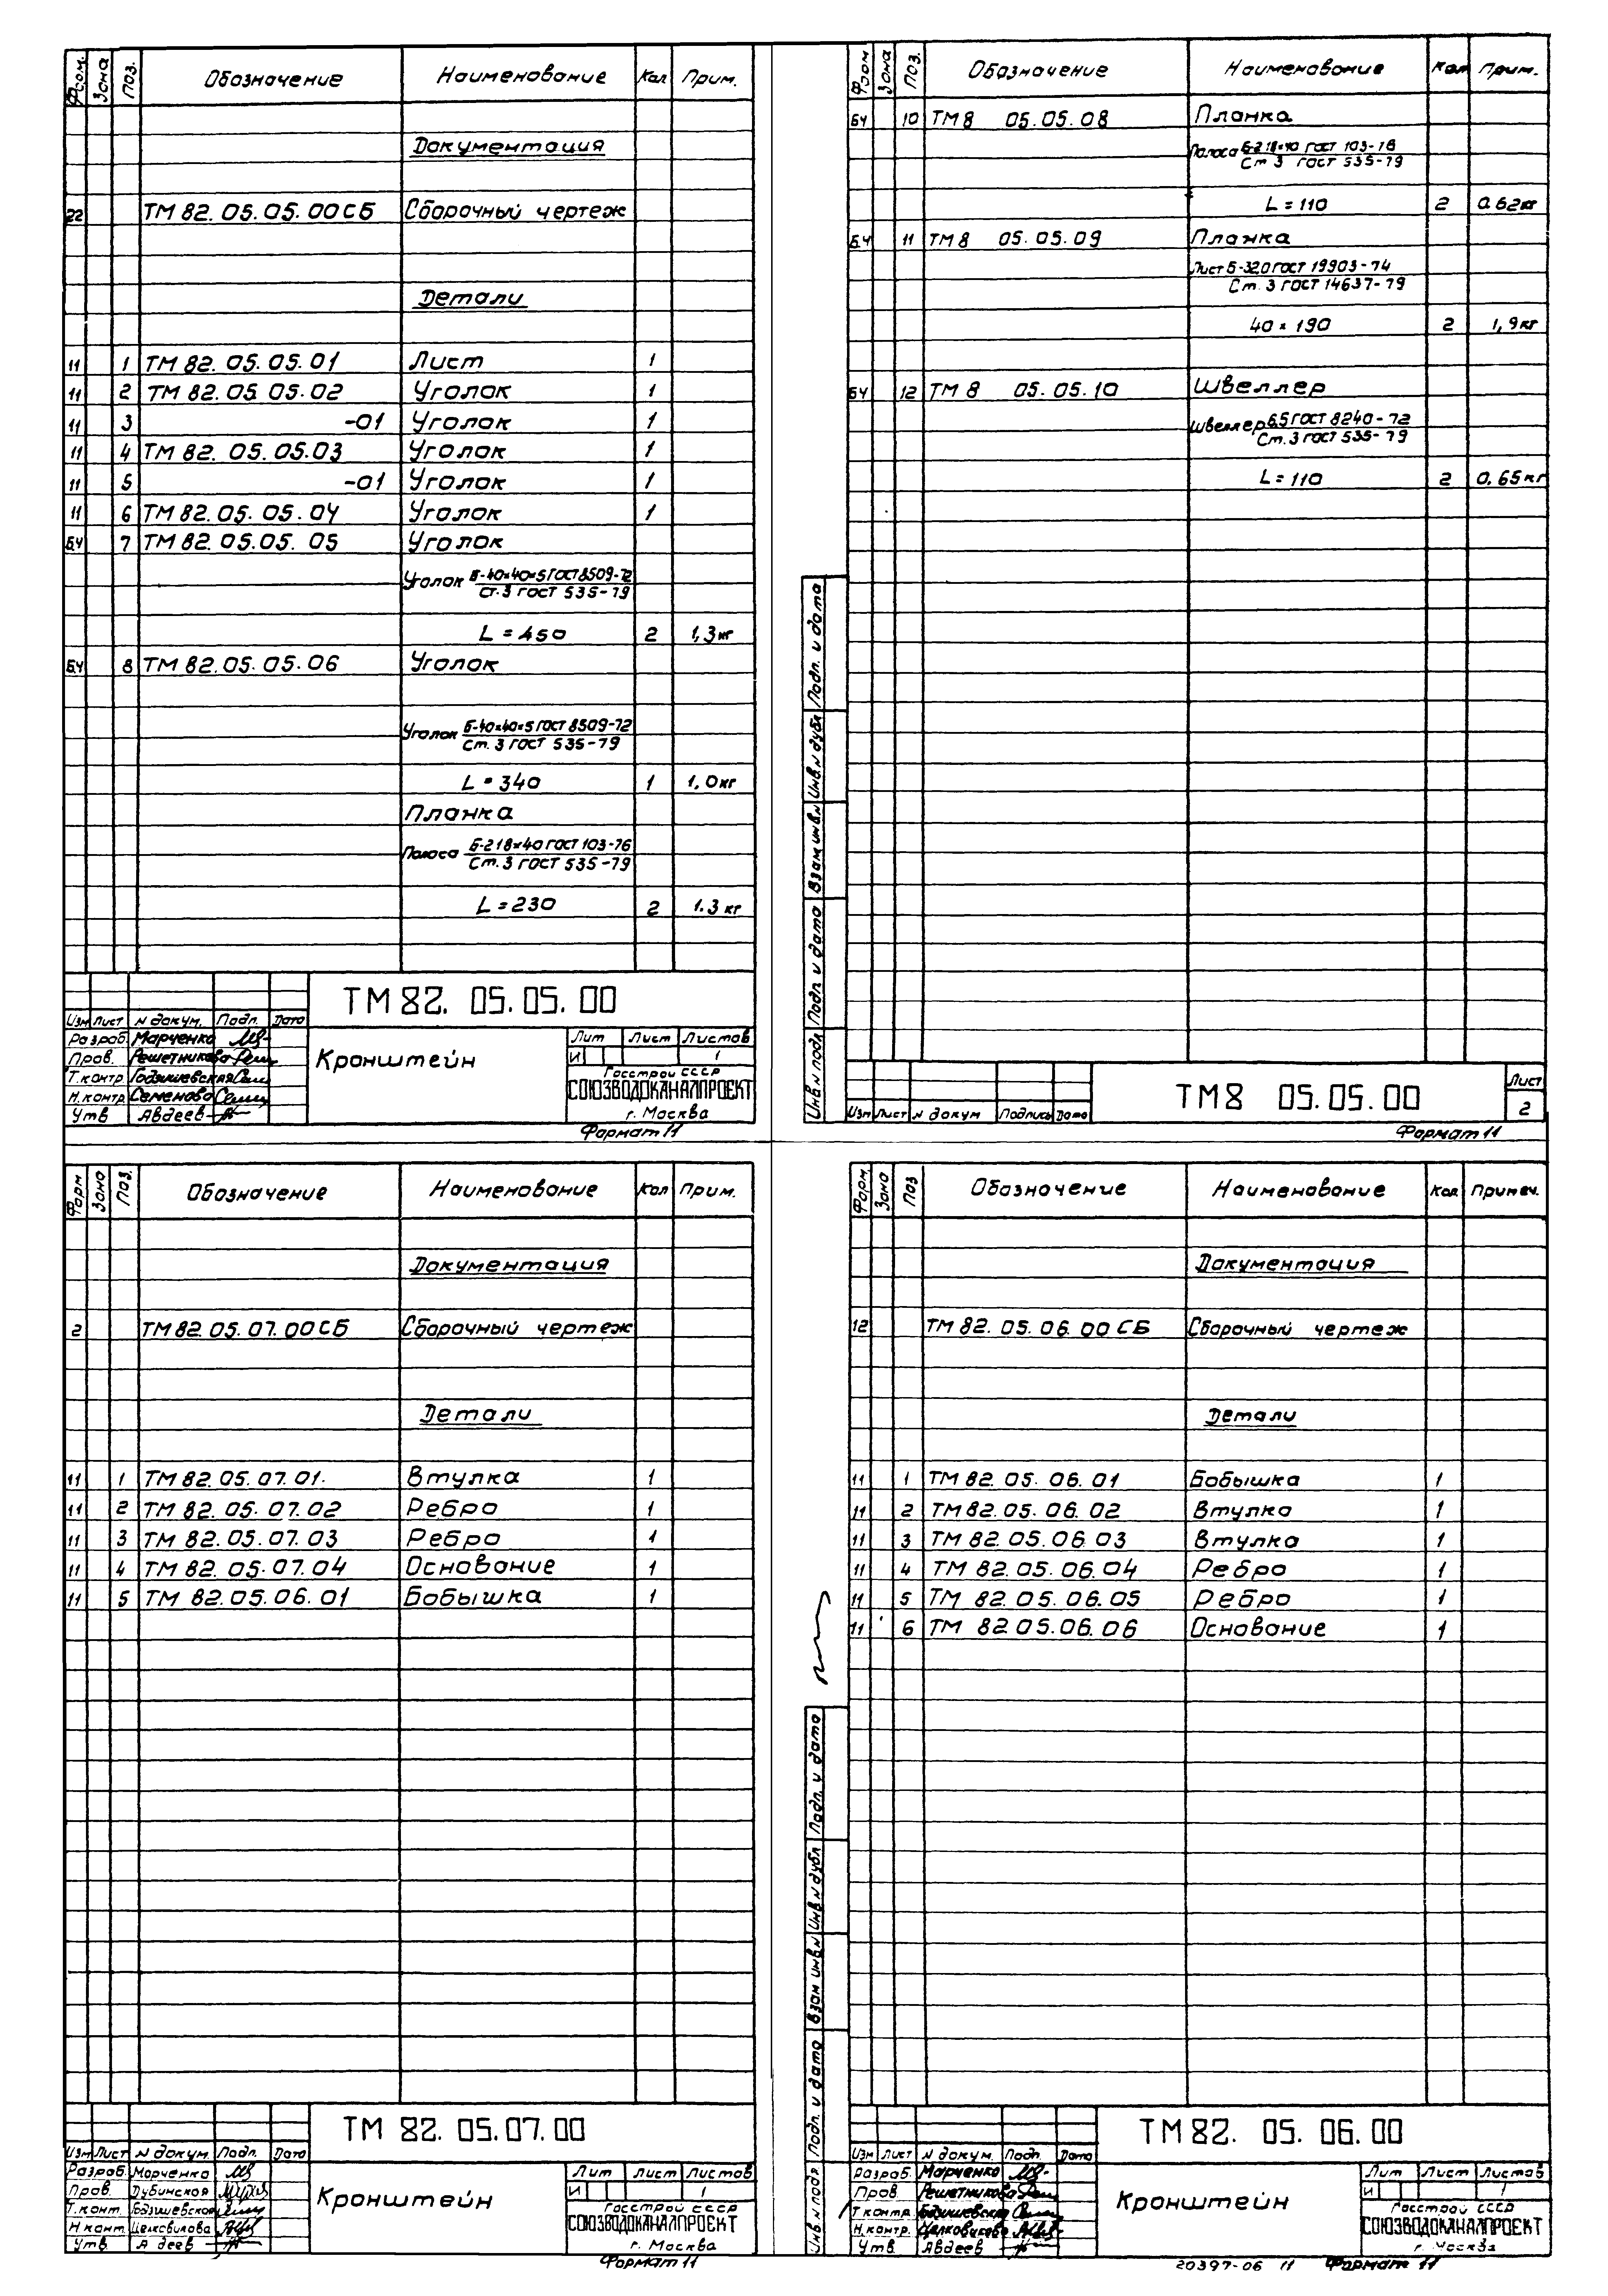 Форм. Зона Поз. Обозначение Наименование Кол Прим.
Документация
22 ТМ 82. 05. 05. 00 СБ Сборочный чертеж
Детали
11 1 ТМ 82. 05. 05. 01 Лист 1
11 2 ТМ 82. 05. 05. 02 Уголок 1
11 3 -01 Уголок 1
11 4 ТМ 82. 05. 05. 03 Уголок 1
11 5 -01 Уголок 1
11 6 ТМ 82. 05. 05. 04 Уголок 1
БЧ 7 ТМ 82. 05. 05. 05 Уголок
Уголок Б-40×40×5 ГОСТ 8509-72
Ст. 3 ГОСТ 535-79
L = 450 2 1,3 кг
БЧ 8 ТМ 82. 05. 05. 06 Уголок
Уголок Б-40×40×5 ГОСТ 8509-72
Ст. 3 ГОСТ 535-79
L = 340 1 1,0 кг
Планка
Полоса Б-2 18×40 ГОСТ 103-76
Ст. 3 ГОСТ 535-79
L = 230 2 1.3 кг
ТМ 82. 05. 05. 00
Изм Лист N докум. Подп. Дата
Разраб. Марченко
Пров. Решетникова
Т. контр.
Н. контр. Семенова
Утв Авдеев
Кронштейн
Лит Лист Листов
И 1
Госстрой СССР
СОЮЗВОДОКАНАЛПРОЕКТ
г. Москва
Формат 11
Форм Зона Поз. Обозначение Наименование Кол Прим.
БЧ 10 ТМ 8 05. 05. 08 Планка
Полоса Б-2 18×40 ГОСТ 103-76
Ст 3 ГОСТ 535-79
L = 110 2 0.62 кг
БЧ 11 ТМ 8 05. 05. 09 Планка
Лист Б-32,0 ГОСТ 19903-74
Ст. 3 ГОСТ 14637-79
40 × 190 2 1,9 кг
БЧ 12 ТМ 8 05. 05. 10 Швеллер
Швеллер 6.5 ГОСТ 8240-72
Ст. 3 ГОСТ 535-79
L = 110 2 0,65 кг
Инв N подл Подп. и дата Взам инв N Инв. N дубл Подп. и дата
Изм Лист N докум Подпись Дата
ТМ 8 05. 05. 00
Лист
2
Формат 11
Форм Зона Поз. Обозначение Наименование Кол Прим.
Документация
2 ТМ 82. 05. 07. 00 СБ Сборочный чертеж
Детали
11 1 ТМ 82. 05. 07. 01. Втулка 1
11 2 ТМ 82. 05. 07. 02 Ребро 1
11 3 ТМ 82. 05. 07. 03 Ребро 1
11 4 ТМ 82. 05. 07. 04 Основание 1
11 5 ТМ 82. 05. 06. 01 Бобышка 1
ТМ 82. 05. 07. 00
Изм Лист N докум. Подп. Дата
Разраб. Марченко
Пров. Дубинская
Т. конт.
Н конт.
Утв А деев
Кронштейн
Лит Лист Листов
И 1
Госстрой СССР
СОЮЗВОДОКАНАЛПРОЕКТ
г. Москва
Формат 11
Форм. Зона Поз Обозначение Наименование Кол Примеч.
Документация
12 ТМ 82. 05. 06. 00 СБ Сборочный чертеж
Детали
11 1 ТМ 82. 05. 06. 01 Бобышка 1
11 2 ТМ 82. 05. 06. 02 Втулка 1
11 3 ТМ 82. 05. 06. 03 Втулка 1
11 4 ТМ 82. 05. 06. 04 Ребро 1
11 5 ТМ 82. 05. 06. 05 Ребро 1
11 6 ТМ 82 05. 06. 06 Основание 1
Инв N подл Подп. и дата Взам инв N Инв N дубл Подп. и дата
ТМ 82. 05. 06. 00
Изм Лист N докум. Подп. Дата
Разраб. Марченко
Пров. Решетникова
Т контр.
Н. контр. Целковикова
Утв. Авдеев
Кронштейн
Лит Лист Листов
И 1
Госстрой СССР
СОЮЗВОДОКАНАЛПРОЕКТ
г. Москва
20397-06 11 Формат 11